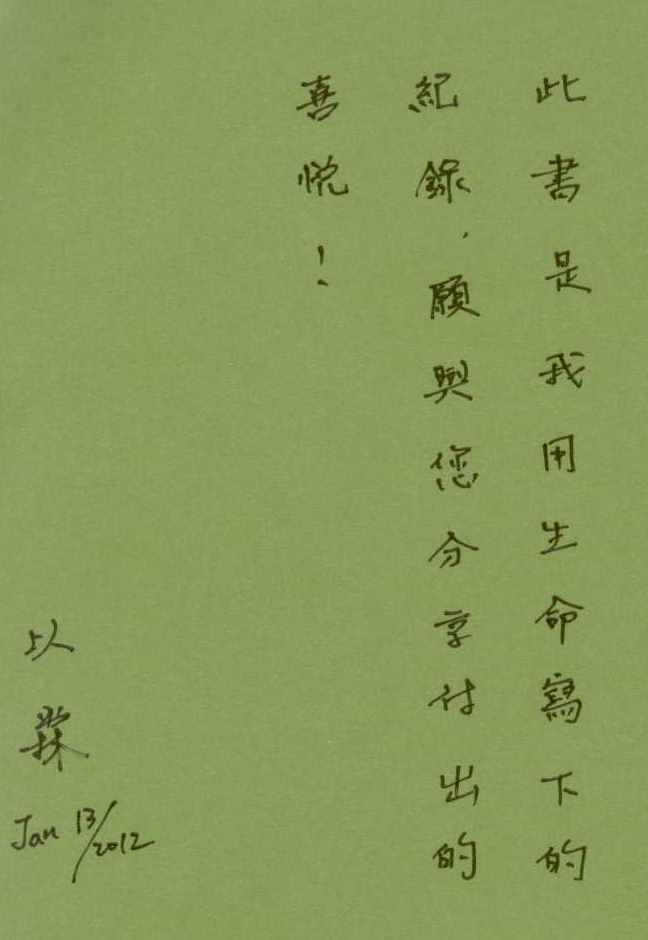 此書是我用生命寫下的
紀錄，願與您分享付出的
喜悅！
以霖
Jan 13/2012